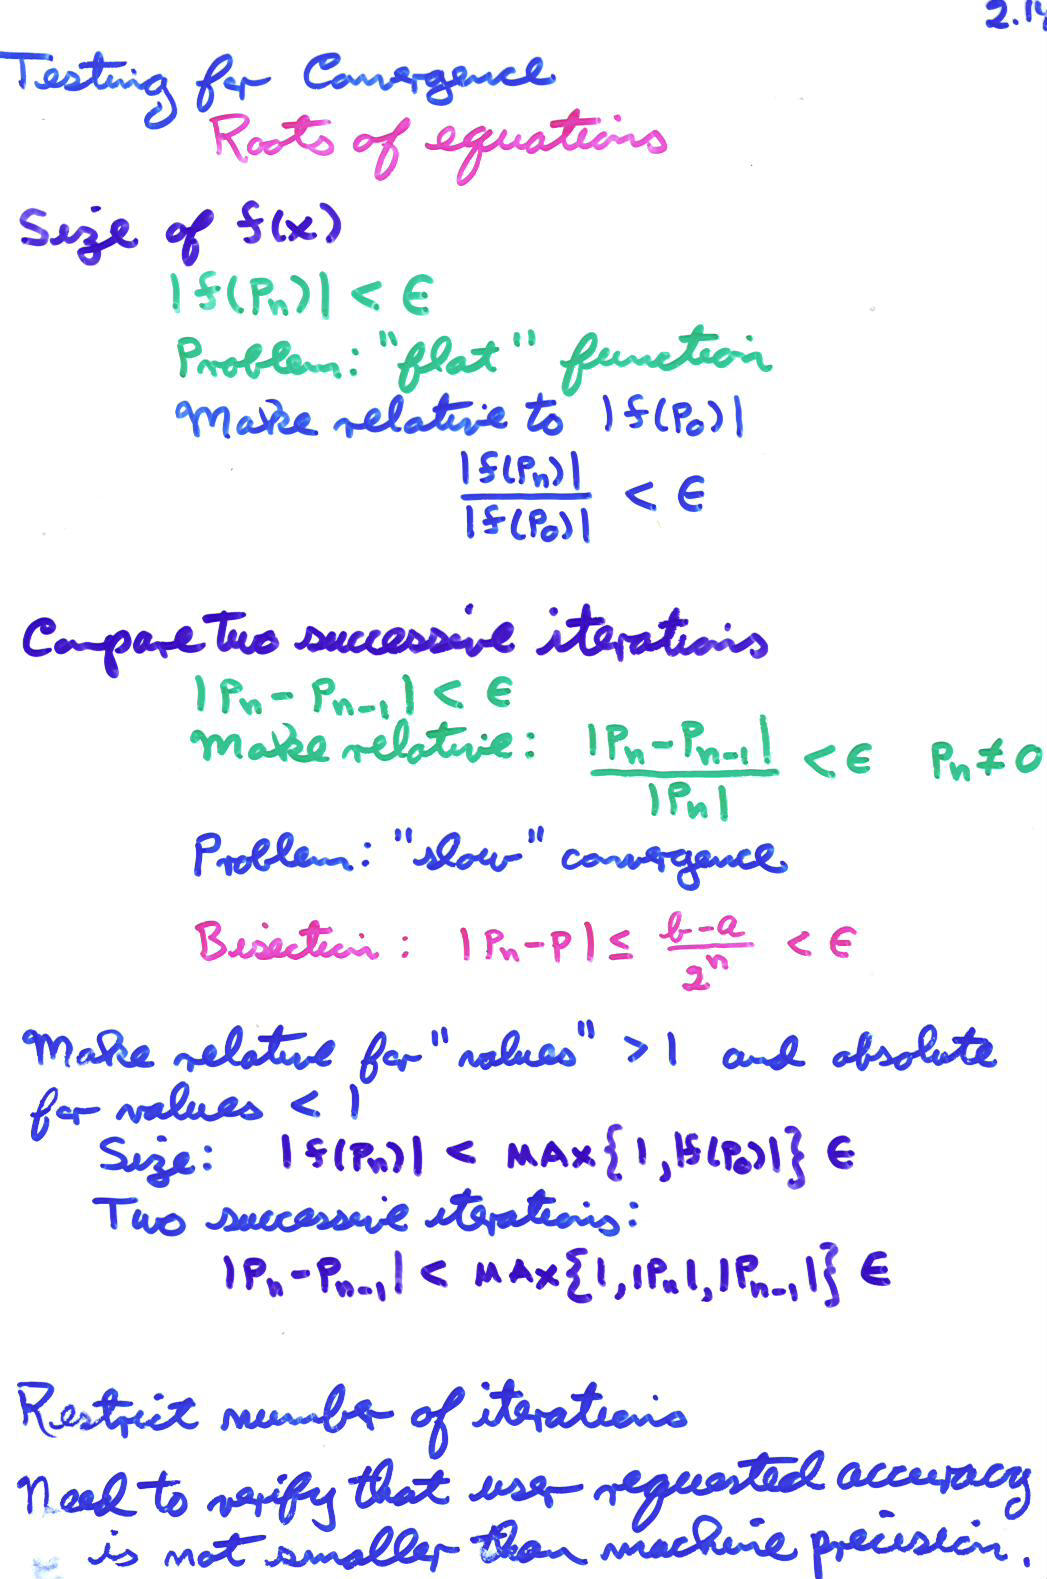 2.14
Testing for Convergence
Roots of equations
Size of f(x)
|f(Pn)| < ϵ
Problem: "flat" function
Make relative to |f(P₀)|
|f(Pn)|
|f(P₀)| < ϵ
Compare two successive iterations
|Pn - Pn-1| < ϵ
Make relative: |Pn - Pn-1| / |Pn| < ϵ Pn ≠ 0
Problem: "slow" convergence
Bisection: |Pn - P| ≤ b-a / 2ⁿ < ϵ
Make relative for "values" > 1 and absolute
for values < 1
Size: |f(Pn)| < MAX{1, |f(P₀)|} ϵ
Two successive iterations:
|Pn - Pn-1| < MAX{1, |Pn|, |Pn-1|} ϵ
Restrict number of iterations
Need to verify that user requested accuracy
is not smaller than machine precision.